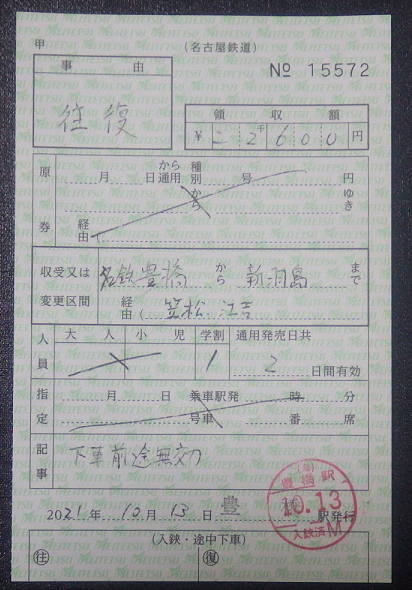 甲
(名古屋鉄道)
事 由
№ 15572
往復
領 収 額
¥ 二 2千 6 0 0 円
原券
月 日
から通用
種別
号
円
から
ゆき
経由
収受又は変更区間
名鉄豊橋 から 新羽島 まで
経由 ( 笠松、江吉
人員
大 人
小 児
学割
通用発売日共
1
2 日間有効
指定
月 日 乗車駅発 時 分
号車 番 席
記事
下車前途無効
2021 年 10 月 13 日 豊 駅発行
豊橋駅
10.13
入鋏済 M
(入鋏・途中下車)
往
復